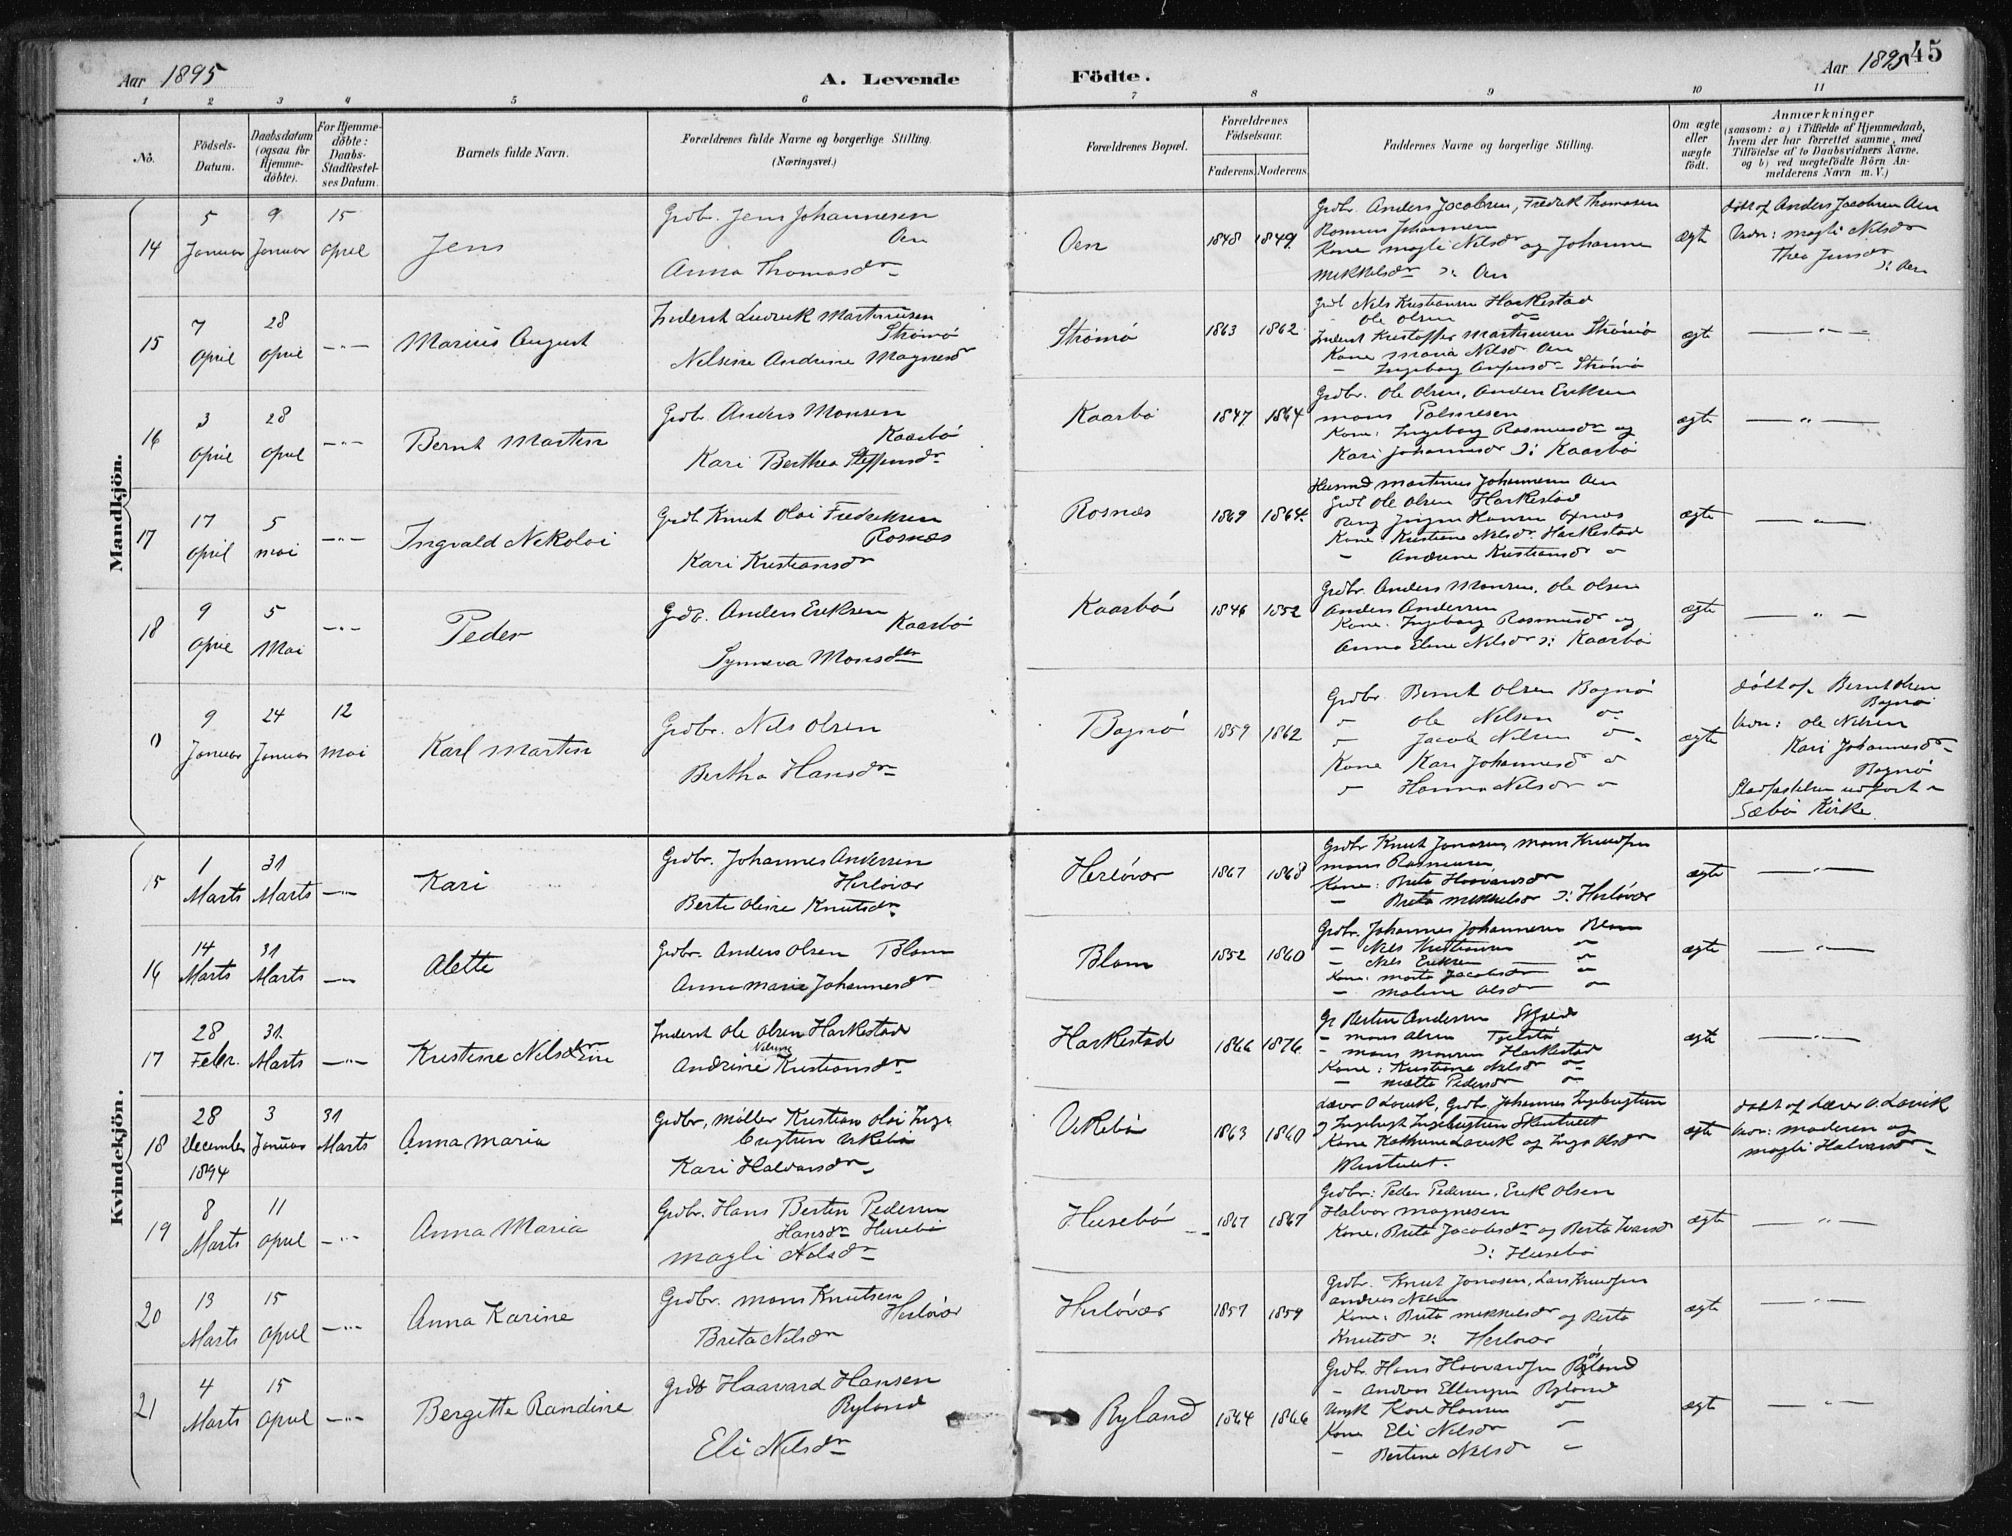 Aar 1895
A. Levende
Födte.
Aar 1895
45
1 2 3 4 5 6 7 8 9 10 11
No.
Födsels-Datum.
Daabsdatum (ogsaa for Hjemme-döbte).
For Hjemme-döbte: Daabs-Stadfæstel-ses Datum.
Barnets fulde Navn.
Forældrenes fulde Navne og borgerlige Stilling.
(Næringsvei.)
Forældrenes Bopæl.
Forældrenes Födselsaar.
Faderens. Moderens.
Faddernes Navne og borgerlige Stilling.
Om ægte eller uægte födt.
Anmærkninger
(saasom: a) i Tilfælde af Hjemmedaab,
hvem der har forrettet samme, med
Tilföielse af to Daabsvidners Navne,
og b) ved uægtefödte Börn An-
melderens Navn m. V.)
Mandkjön.
14
5 Januar
9 Januar
15 April
Jens
Grdbr. Jens Johannesen
Aen
Anna Thomasdr
Aen
1848 1849
Grdbr. Anders Jacobsen, Fredrik Thomasen
Rasmus Johannesen
Kone Magli Nilsdr og Johanne
Mikkelsdr ɔ: Aen
ægte
döbt af Anders Jacobsen Aen
Vidn: Magli Nilsdr
Thea Jensdr
ɔ: Aen
15
7 April
28 April
—"—
Marius August
Inderst Ludvik Martinusen
Strömö
Nelsine Andrine Magnesdr
Strömö
1863 1862
Grdb Nils Kristiansen Harkestad
- Ole Olsen
Inderst Kristoffer Martinusen Strömö
Kone Maria Nilsdr Aen
- Ingeborg Strömö
ægte
— " —
16
3 April
28 April
—"—
Bernt Martin
Grdbr Anders Monsen
Kaarbö
Kari Berthea Steffensdr
Kaarbö
1847 1864
Grdbr. Ole Olsen, Anders Eriksen
Mons
Kone: Ingeborg Rasmusdr og
Kari Johannesdr ɔ: Kaarbö
ægte
— " —
17
17 April
5 Mai
—"—
Ingvald Nikolai
Grdb Knut Olai Fredriksen
Rosnæs
Kari Kristiansdr
Rosnæs
1869 1864
Husmd Martinus Johannesen Aen
Grdb Ole Olsen Harkestad
Hansen
Kone Kristine Nilsdr Harkestad
- Andrine Kristiansdr
ægte
— " —
18
9 April
5 Mai
—"—
Peder
Grdb. Anders Eriksen
Kaarbö
Synneva Monsdtr
Kaarbö
1846 1852
Grdbr. Anders Monsen, Ole Olsen
Anders Andersen
Kone: Ingeborg Rasmusdr og
Anna Elene Nilsdr ɔ: Kaarbö
ægte
— " —
0
9 Januar
24 Januar
12 Mai
Karl Martin
Grdbr. Nils Olsen
Bertha Hansdr
Bognö
1859 1862
Grdbr. Bernt Olsen Bognö
" Ole Nilsen "
" Jacob Nilsen "
Kone Kari Johannesdr "
" Hanna Nilsdr "
ægte
döbt af Bernt Olsen
Bognö
Vidn: Ole Nilsen
Kari Johannesdr
Bognö
Stadfæstelsen udfört i
Sæbö Kirke
Kvindekjön.
15
1 Marts
31 Marts
—"—
Kari
Grdbr. Johannes Andersen
Herlövær
Berte Oline Knutsdr
Herlövær
1867 1868
Grdbr Knut Jonasen, Mons Knudsen
Mons Rasmusen
Kone: Brita Haavarsdr
- Brita Mikkelsdr ɔ: Herlövær
ægte
— " —
16
14 Marts
31 Marts
—"—
Alette
Grdbr. Anders Olsen Blom
Anna Marie Johannesdr
Blom
1852 1860
Grdbr. Johannes Johannesen Blom
- Nils Kristiansen "
- Nils Eriksen "
Kone: Marta Jacobsdr "
- Malene Olsdr "
ægte
— " —
17
28 Febr.
31 Marts
—"—
Kristine Nilsdine
Inderst Ole Olsen Harkestad
Nelsine
Andrine Kristiansdr
Harkestad
1866 1876
Gr Bertin Andersen
- Mons Olsen
- Mons Monsen Harkestad
Kone: Kristine Nilsdr "
- Mætte Pedersdr "
ægte
— " —
18
28 December 1894
3 Januar
31 Marts
Anna Maria
Grdbr, Möller Kristian Olai Inge
brigtsen Vikebö
Kari Halvorsdr
Vikebö
1863 1860
Lærer O Lavik, Grdbr Johannes Ingebrigtsen
og Ingebrigt Ingebrigtsen
Kone Kathrine Lavik og Inga Olsdr
ægte
döbt af Lærer O. Lavik
Vidn: Moderen og
Magli Halvorsdr
19
8 Marts
11 April
—"—
Anna Maria
Grdbr. Hans Bertin Pedersen
Hansdr Husebö
Magli Nilsdr
Husebö
1867 1867
Grdbr: Peder Pedersen, Erik Olsen
Halvor Magnesen
Kone: Brita Jacobsdr og Berta Ivarsd
ɔ: Husebö
ægte
— " —
20
13 Marts
15 April
—"—
Anna Karine
Grdbr. Mons Knutsen
Herlövær
Brita Nilsdr
Herlövær
1857 1859
Grdbr. Knut Jonasen, Lars Knudsen
Andreas Nilsen
Kone: Brita Mikkelsdr og Berta
Knutsd ɔ: Herlövær
ægte
— " —
21
4 Marts
15 April
—"—
Bergitte Randine
Grdb Haavard Hansen
Ryland
Eli Nilsdr
Ryland
1864 1866
Grdbr Hans Haavardsen Byland
- Anders Ellingsen Ryland
Ungk Kore Hansen "
Kone Eli Nilsdr "
- Bertine Nilsdr "
ægte
— " —